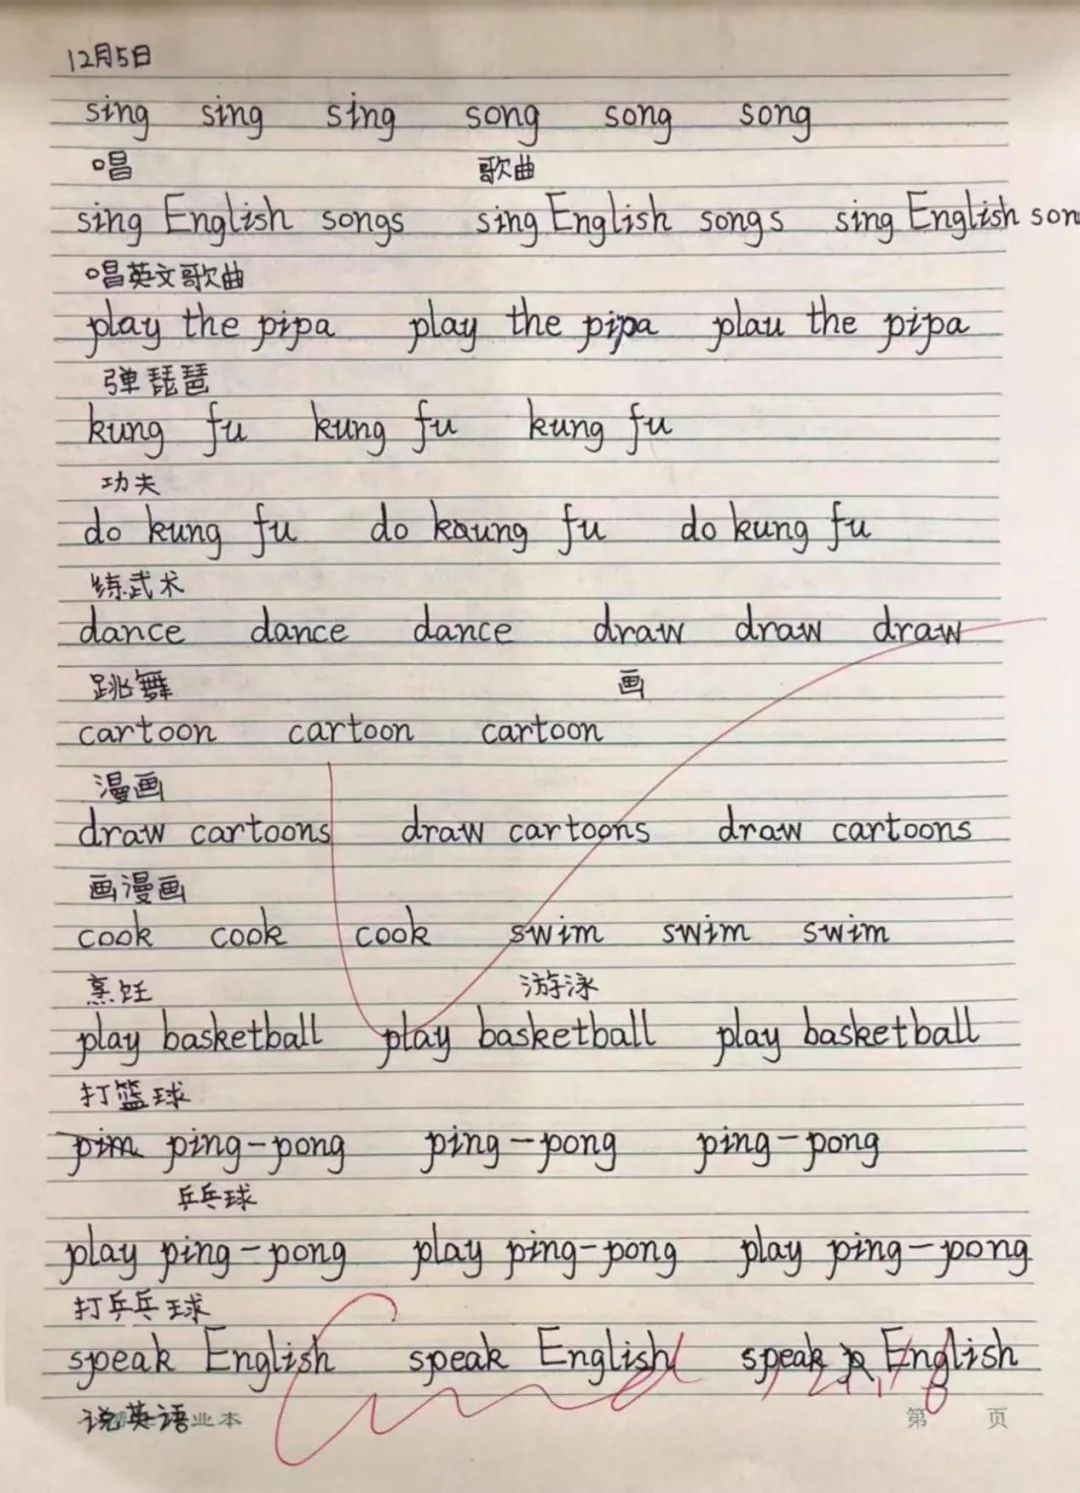 12月5日
sing sing sing song song song
唱 歌曲
sing English songs sing English songs sing English son
唱英文歌曲
play the pipa play the pipa plau the pipa
弹琵琶
kung fu kung fu kung fu
功夫
do kung fu do kaung fu do kung fu
练武术
dance dance dance draw draw draw
跳舞 画
cartoon cartoon cartoon
漫画
draw cartoons draw cartoons draw cartoons
画漫画
cook cook cook swim swim swim
烹饪 游泳
play basketball play basketball play basketball
打篮球
pim ping-pong ping-pong ping-pong
乒乓球
play ping-pong play ping-pong play ping-pong
打乒乓球
speak English speak English speak English
说英语 业本 第 页